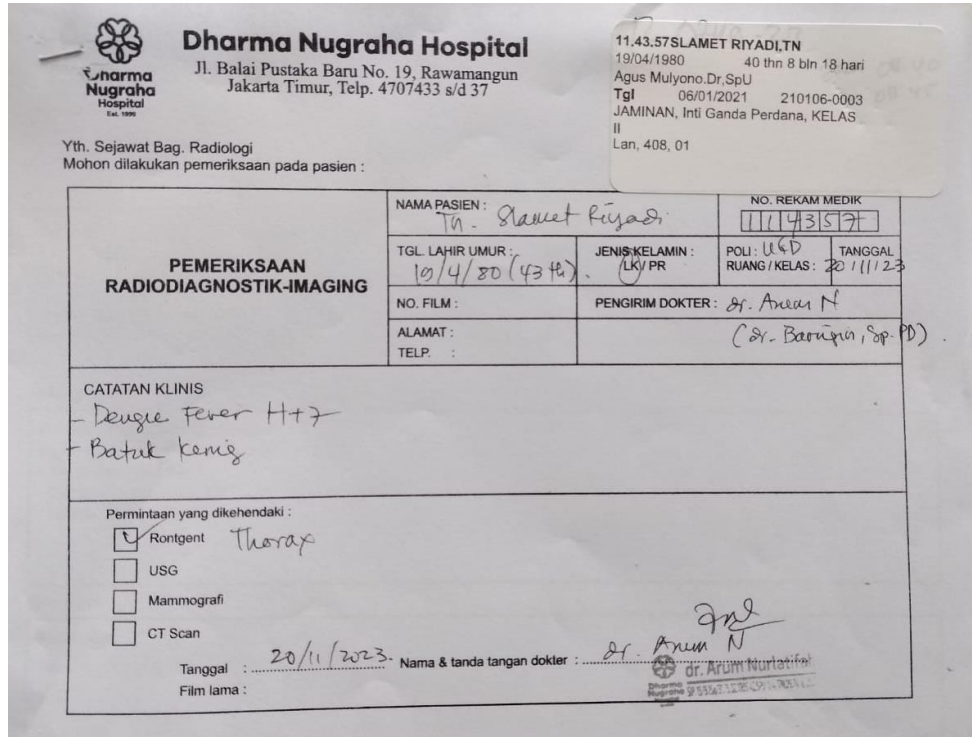 Dharma
Nugraha
Hospital
Est. 1996
Dharma Nugraha Hospital
Jl. Balai Pustaka Baru No. 19, Rawamangun
Jakarta Timur, Telp. 4707433 s/d 37
11.43.57SLAMET RIYADI,TN
19/04/1980 40 thn 8 bln 18 hari
Agus Mulyono.Dr,SpU
Tgl 06/01/2021 210106-0003
JAMINAN, Inti Ganda Perdana, KELAS
II
Lan, 408, 01
Yth. Sejawat Bag. Radiologi
Mohon dilakukan pemeriksaan pada pasien :
PEMERIKSAAN
RADIODIAGNOSTIK-IMAGING
NAMA PASIEN : Tn. Slamet Riyadi
NO. REKAM MEDIK
114357
TGL. LAHIR UMUR : 19/4/80 (43 th).
JENIS KELAMIN :
LK/ PR
POLI : UGD
RUANG / KELAS :
TANGGAL
20/11/23
NO. FILM :
PENGIRIM DOKTER : dr. Arum N
(dr. , Sp.PD).
ALAMAT :
TELP. :
CATATAN KLINIS
- Dengue Fever H+7
- Batuk kering
Permintaan yang dikehendaki :
Rontgent Thorax
USG
Mammografi
CT Scan
Tanggal : 20/11/2023. Nama & tanda tangan dokter : dr. Arum N
dr. Arum Nurlatifah
Dharma
Nugraha
Film lama :